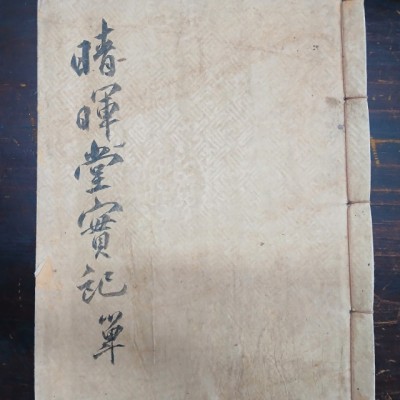 晴暉堂實記 單